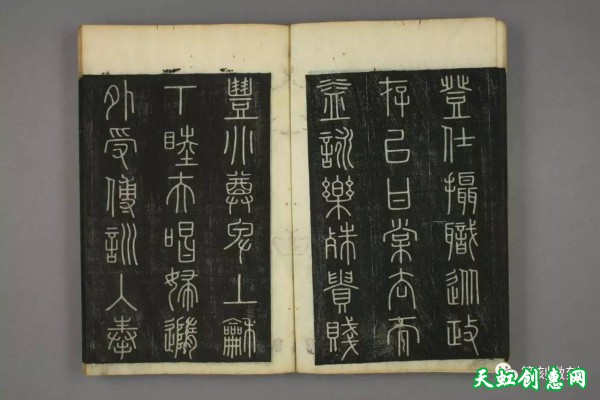 登仕攝職從政
存以甘棠去而
益詠樂殊貴賤
豊別尊卑上龢
下睦夫唱婦隨
外受傅訓入奉
天虹创惠网